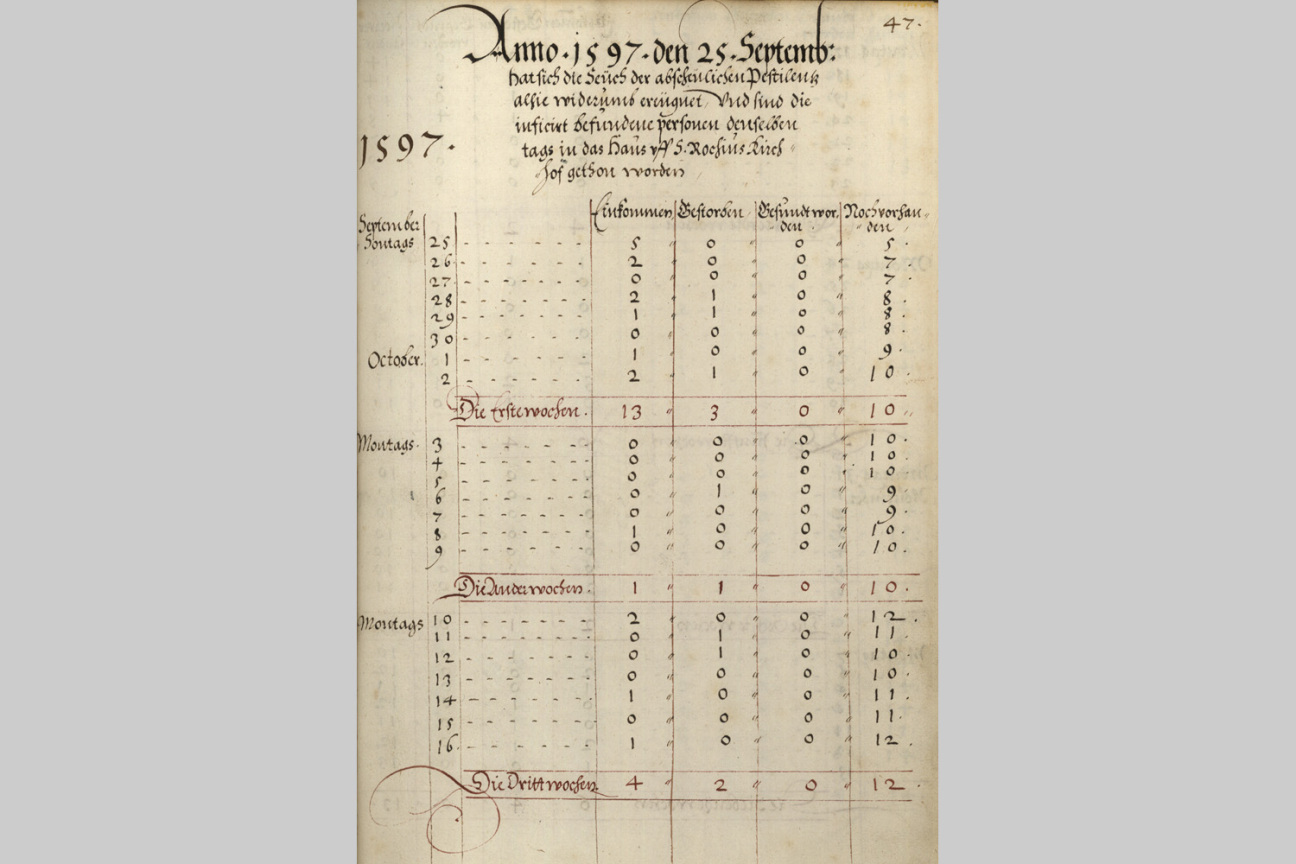 47.
Anno. 1597. den 25. Septemb:
hat sich die Seuch der abscheulichen Pestilentz
alhie widerumb ereügnet, Vnd sind die
inficirt befundene personen denselben
1597.
tags in das Haus vff S. Rochius Kirch
hof gethon worden
Einkommen, Gestorben, Gesundt wor, Noch vorhan
den den
September
Sontags 25 5 0 0 5.
26 2 0 0 7.
27 0 0 0 7.
28 2 1 0 8.
29 1 1 0 8.
30 0 0 0 8.
October. 1 1 0 0 9.
2 2 1 0 10.
Die Erste wochen. 13 3 0 10
Montags. 3 0 0 0 10.
4 0 0 0 10.
5 0 0 0 10.
6 0 1 0 9
7 0 0 0 9.
8 1 0 0 10.
9 0 0 0 10.
Die Ander wochen. 1 1 0 10.
Montags 10 2 0 0 12.
11 0 1 0 11.
12 0 1 0 10.
13 0 0 0 10.
14 1 0 0 11.
15 0 0 0 11.
16 1 0 0 12.
Die Dritt wochen. 4 2 0 12